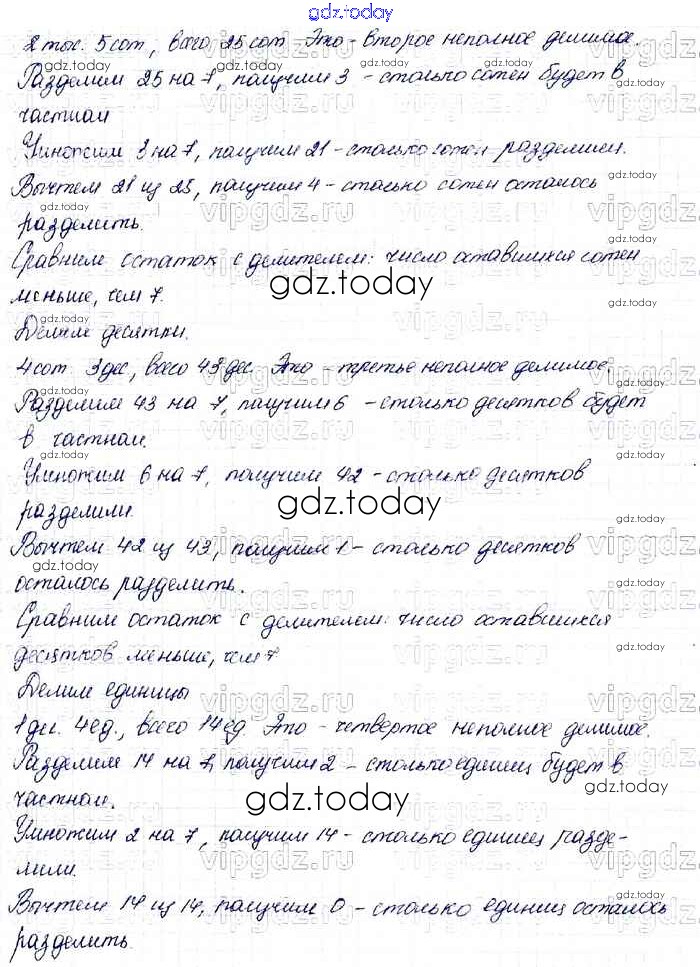 gdz.today
2 тыс. 5 сот, всего 25 сот. Это - второе неполное делимое.
Разделим 25 на 7, получим 3 - столько сотен будет в
частном
Умножим 3 на 7, получим 21 - столько сотен разделили.
Вычтем 21 из 25, получим 4 - столько сотен осталось
разделить.
Сравним остаток с делителем: число оставшихся сотен
меньше, чем 7.
gdz.today
Делим десятки.
4 сот. 3 дес, всего 43 дес. Это - третье неполное делимое.
Разделим 43 на 7, получим 6 - столько десятков будет
в частном.
Умножим 6 на 7, получим 42 - столько десятков
разделили.
gdz.today
Вычтем 42 из 43, получим 1 - столько десятков
осталось разделить.
Сравним остаток с делителем: число оставшихся
десятков меньше, чем 7
Делим единицы
1 дес. 4 ед., всего 14 ед. Это - четвертое неполное делимое.
Разделим 14 на 7, получим 2 - столько единиц будет в
частном.
gdz.today
Умножим 2 на 7, получим 14 - столько единиц разде-
лили.
Вычтем 14 из 14, получим 0 - столько единиц осталось
разделить.
vipgdz.ru